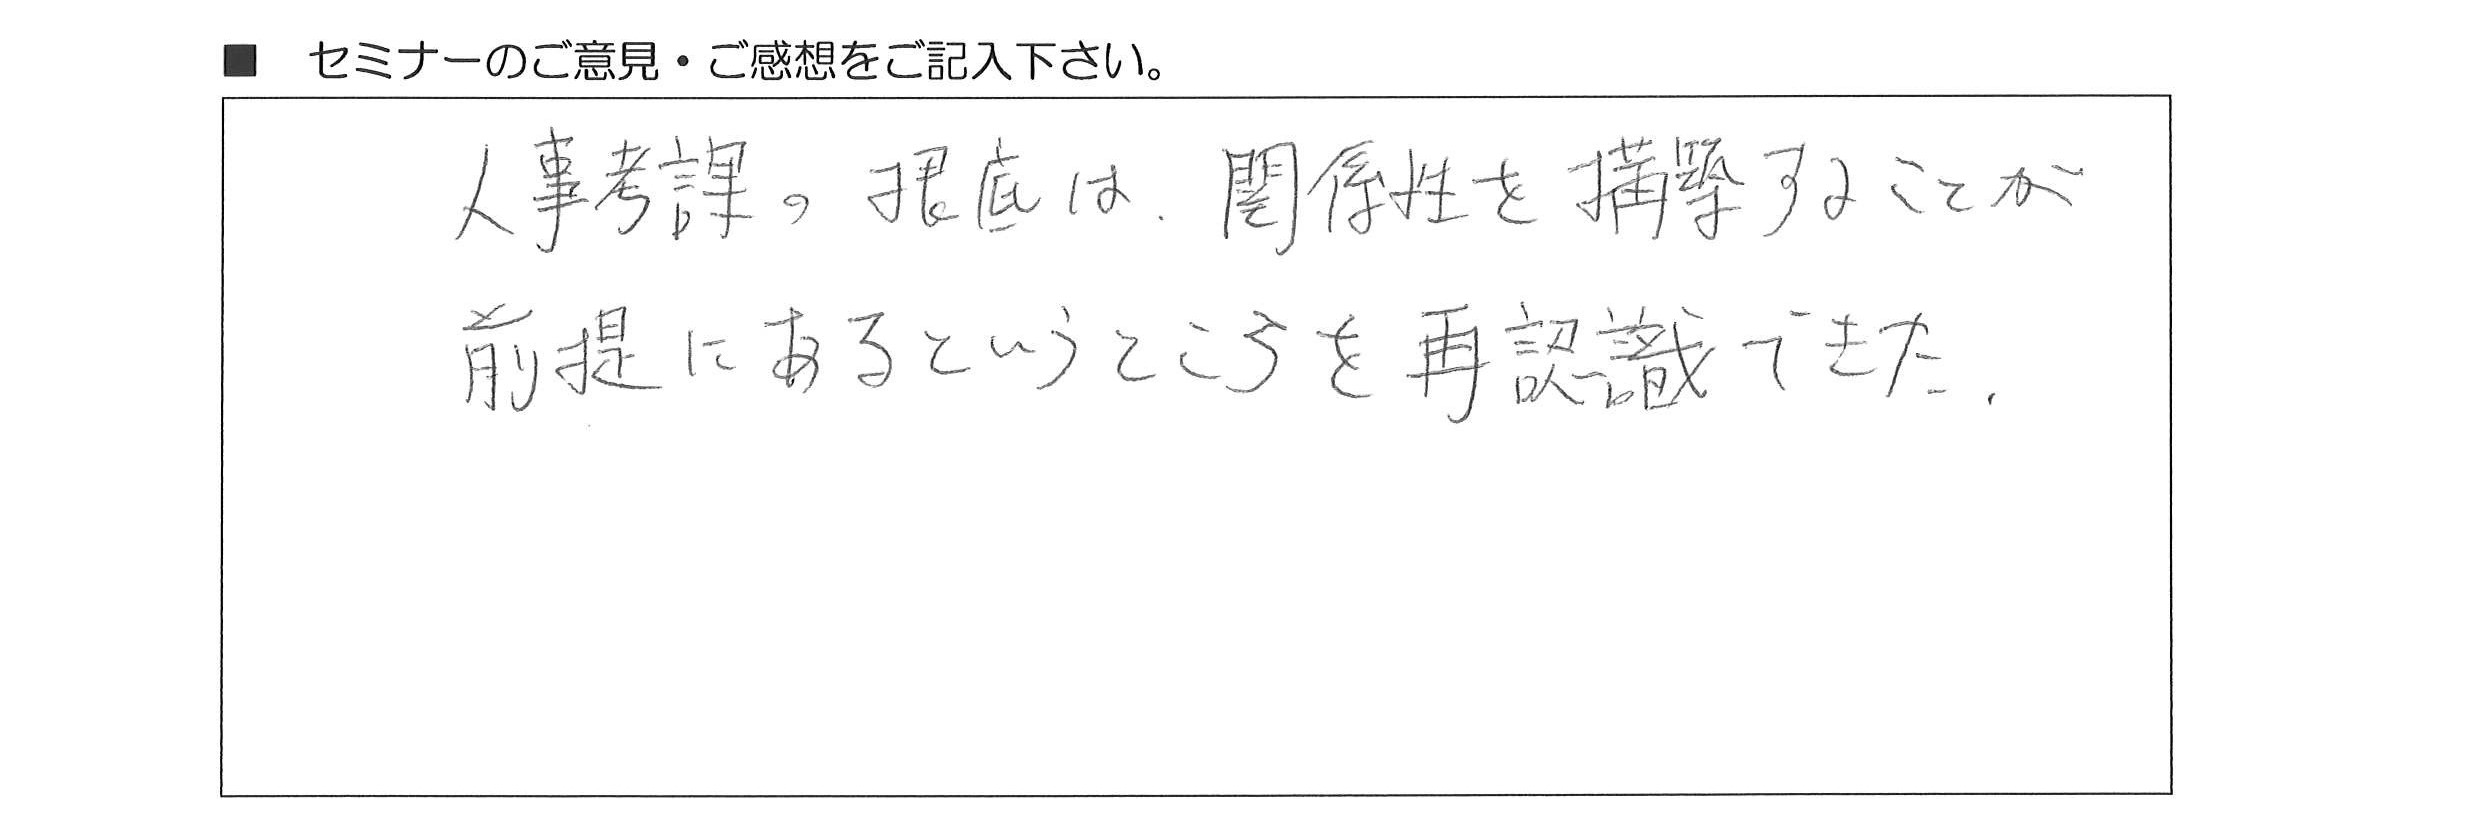 ■ セミナーのご意見・ご感想をご記入下さい。
人事考課の根底は、関係性を構築することが
前提にあるというところを再認識できた。